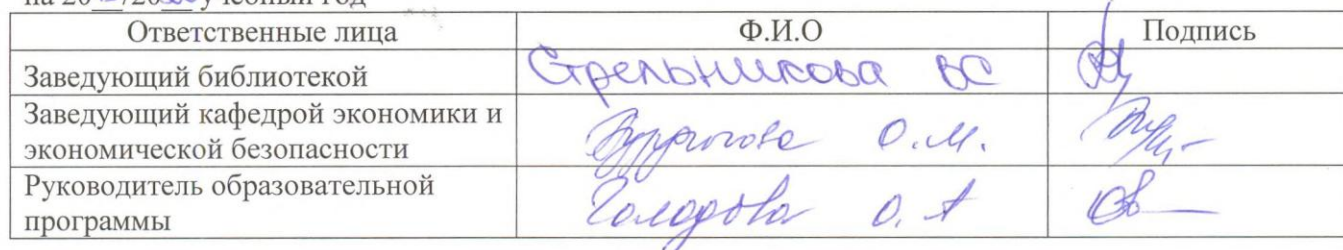 учебный год
Ответственные лица Ф.И.О Подпись
Заведующий библиотекой Стрельникова ВС
Заведующий кафедрой экономики и
экономической безопасности О.М.
Руководитель образовательной
программы О.А